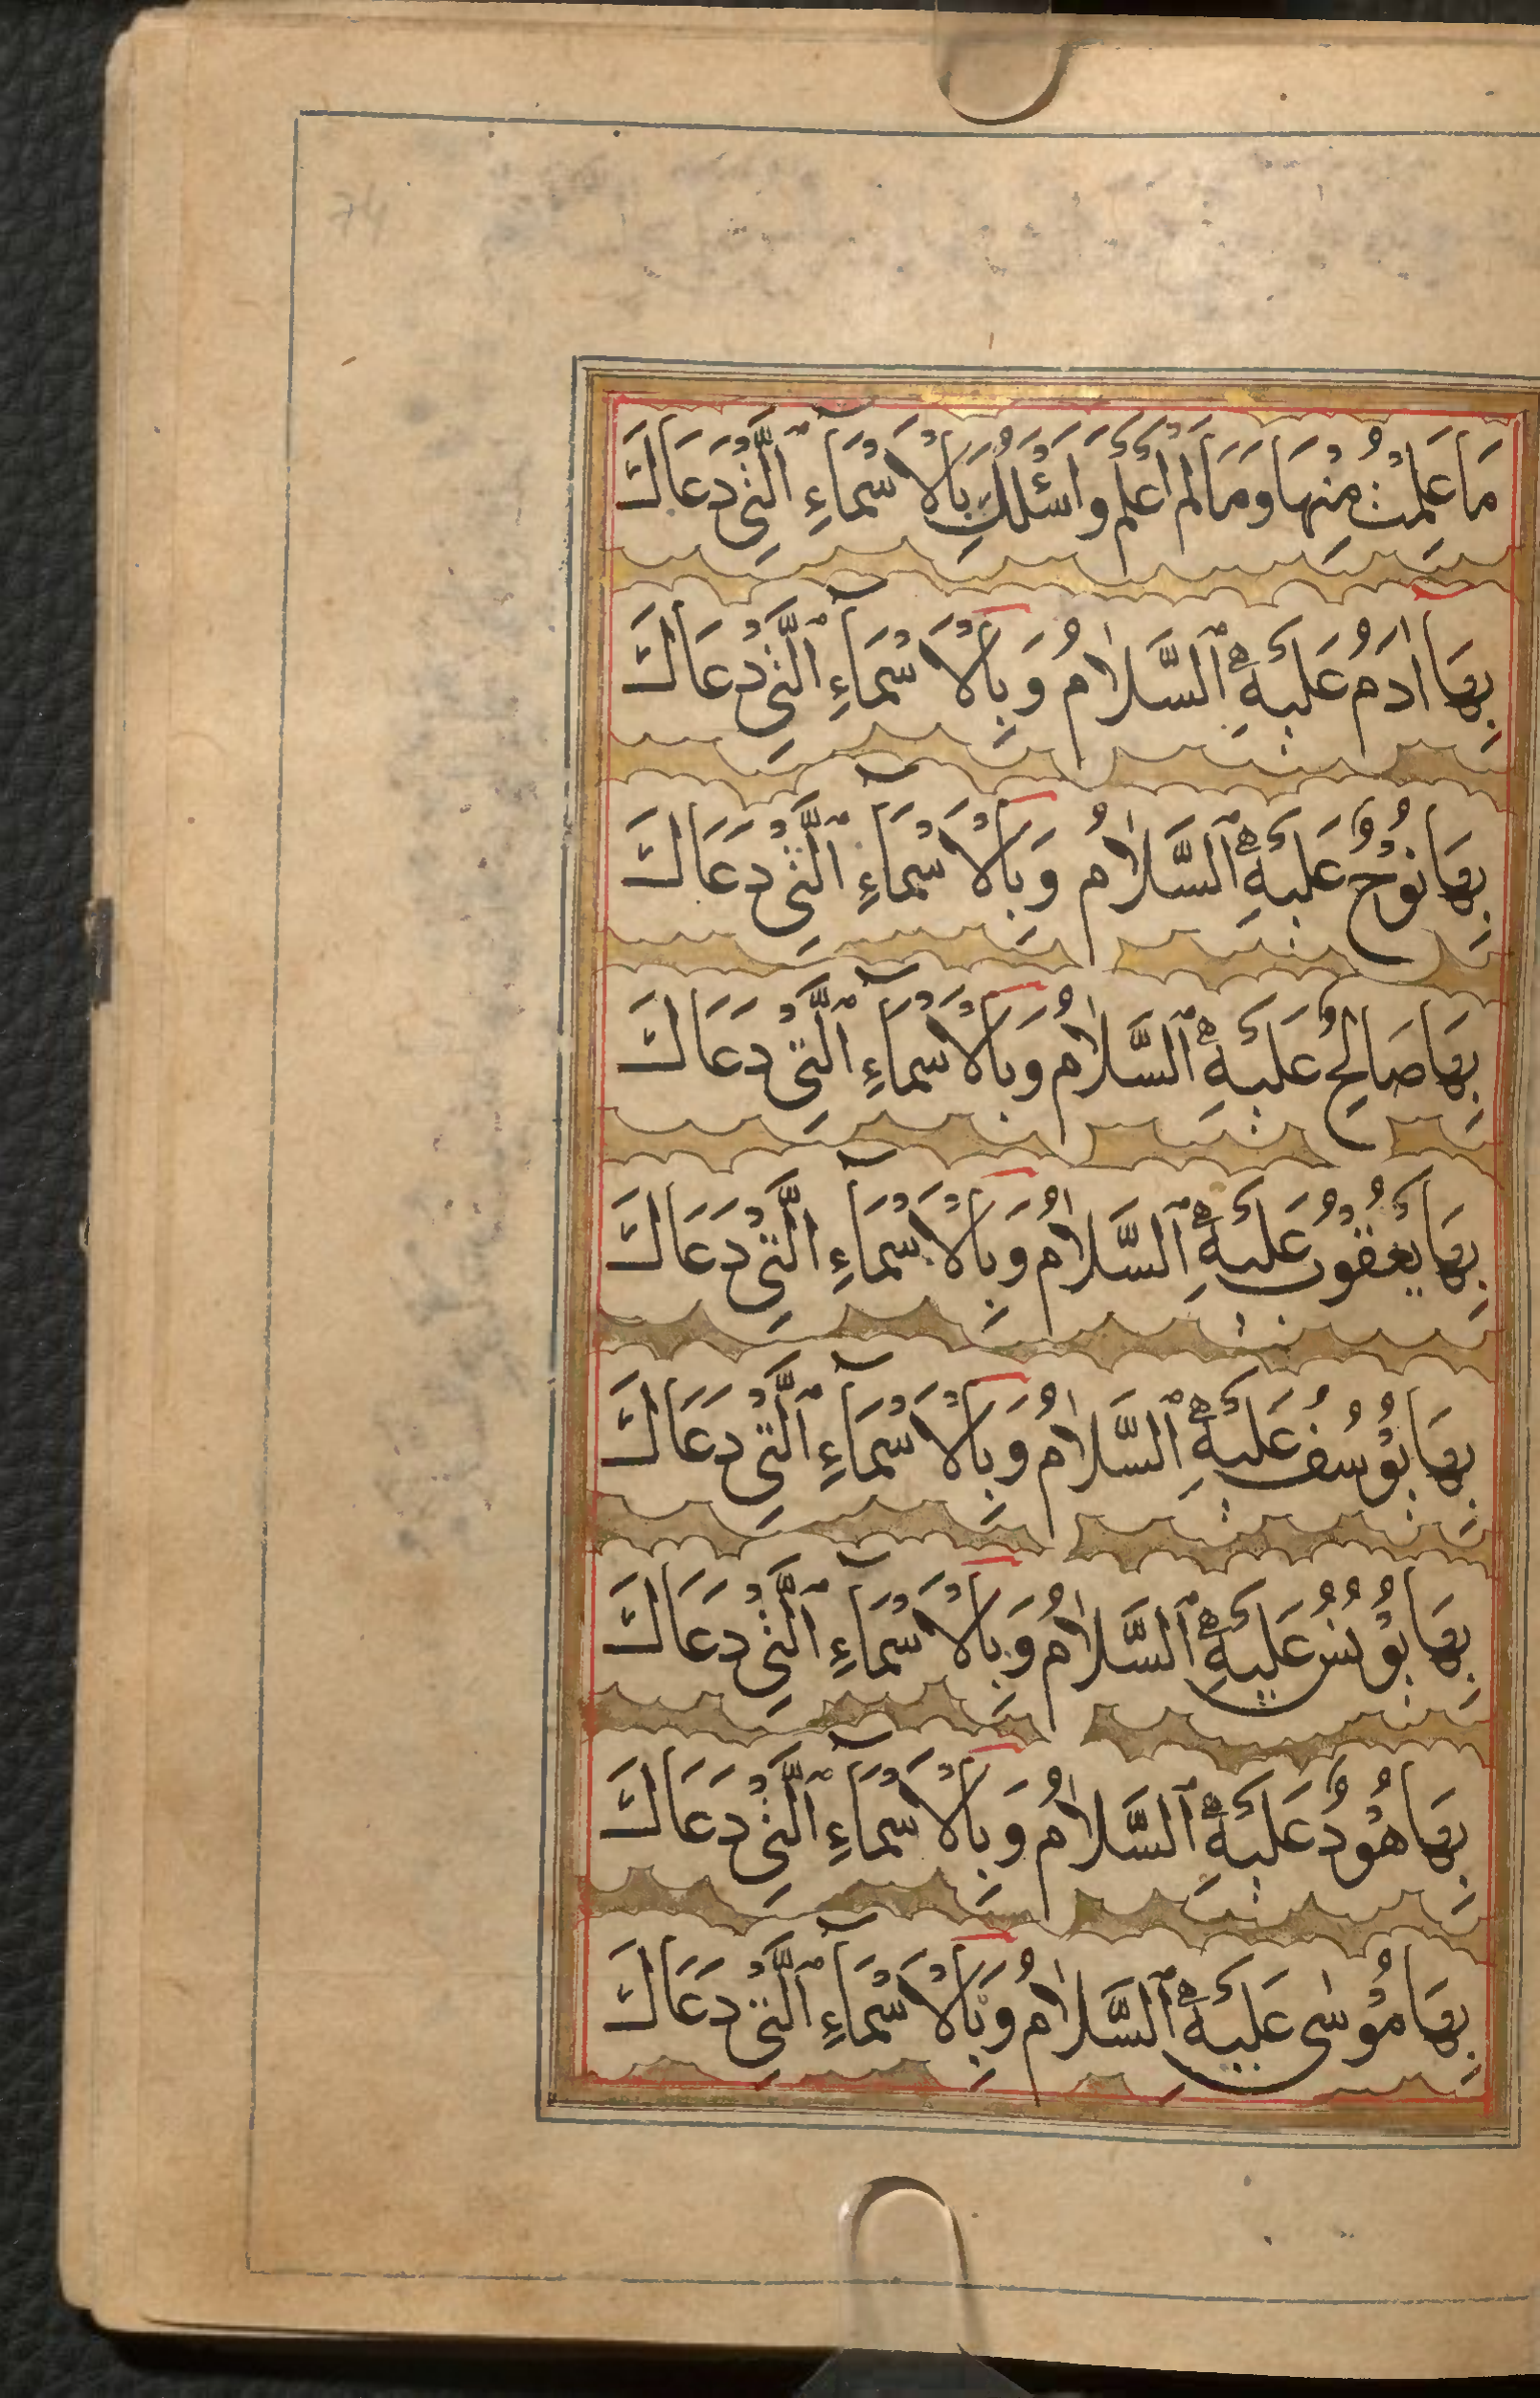 مَا عَلِمْتُ مِنْهَا وَمَا لَمْ أَعْلَمْ وَاَسْئَلُكَ بِالْاَسْمَآءِ الَّتِىْ دَعَاكَ
بِهَا اٰدَمُ عَلَيْهِ السَّلَامُ وَبِالْاَسْمَآءِ الَّتِىْ دَعَاكَ
بِهَا نُوْحٌ عَلَيْهِ السَّلَامُ وَبِالْاَسْمَآءِ الَّتِىْ دَعَاكَ
بِهَا صَالِحٌ عَلَيْهِ السَّلَامُ وَبِالْاَسْمَآءِ الَّتِىْ دَعَاكَ
بِهَا يَعْقُوْبُ عَلَيْهِ السَّلَامُ وَبِالْاَسْمَآءِ الَّتِىْ دَعَاكَ
بِهَا يُوْسُفُ عَلَيْهِ السَّلَامُ وَبِالْاَسْمَآءِ الَّتِىْ دَعَاكَ
بِهَا يُوْنُسُ عَلَيْهِ السَّلَامُ وَبِالْاَسْمَآءِ الَّتِىْ دَعَاكَ
بِهَا هُوْدٌ عَلَيْهِ السَّلَامُ وَبِالْاَسْمَآءِ الَّتِىْ دَعَاكَ
بِهَا مُوْسٰى عَلَيْهِ السَّلَامُ وَبِالْاَسْمَآءِ الَّتِىْ دَعَاكَ